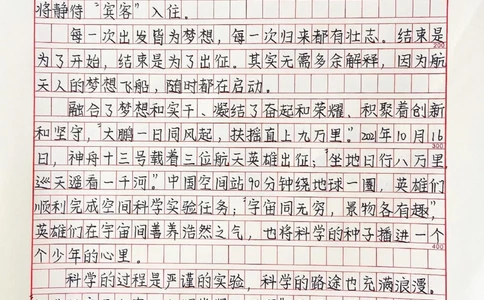 将静待“宾客”入住。
每一次出发皆为梦想,每一次归来都有壮志。结束是
200
为了开始,结束是为了出征。其实无需多余解释,因为航
天人的梦想飞船,随时都在启动。
融合了梦想和实干、凝结了奋起和荣耀、积聚着创新
和坚守,“大鹏一日同风起,扶摇直上九万里。”2021年10月16
300
日,神舟十三号载着三位航天英雄出征;“坐地日行八万里
巡天遥看一千河。”中国空间站90分钟绕地球一圈,英雄们
顺利完成空间科学实验任务;“宇宙同无穷,景物各有趣”,
英雄们在宇宙间善养浩然之气,也将科学的种子播进一个
400
个少年的心里。
科学的过程是严谨的实验,科学的路途也充满浪漫。